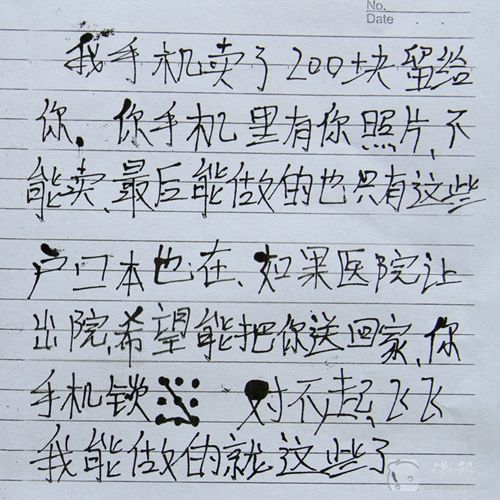 No.
Date
我手机卖了200块留给
你，你手机里有你照片，不
能卖，最后能做的也只有这些
户口本也在，如果医院让
出院，希望能把你送回家，你
手机锁 对不起，飞飞
我能做的就这些了